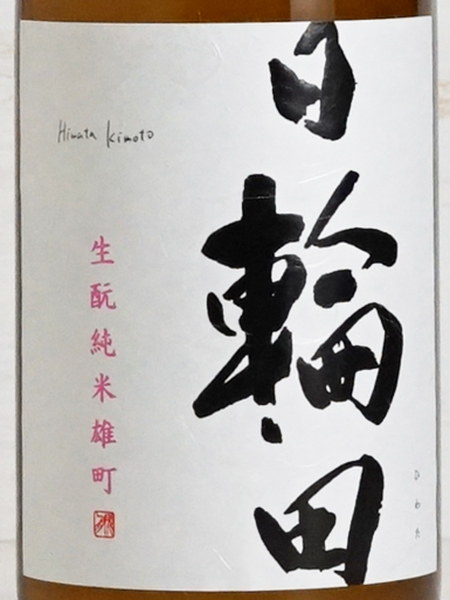 日輪田
ひわた
Hiwata Kimoto
生酛純米雄町